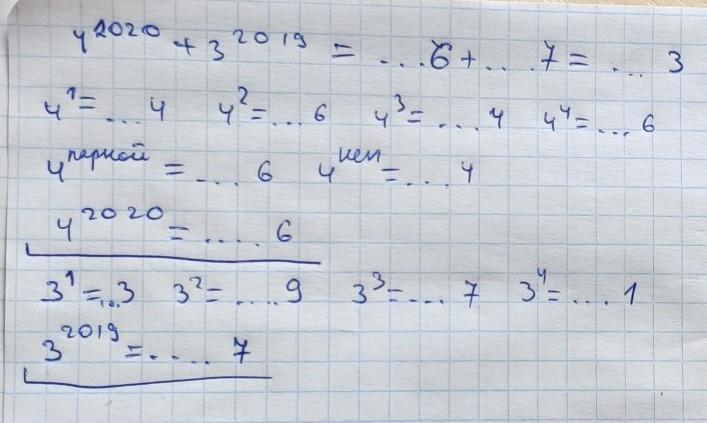 4^2020 + 3^2019 = ...6 + ...7 = ... 3
4^1 = ...4 4^2 = ...6 4^3 = ....4 4^4 = ...6
4^парной = .... 6 4^неп = ....4
4^2020 = ..... 6
3^1 = ...3 3^2 = ....9 3^3 = .... 7 3^4 = .... 1
3^2019 = ..... 7